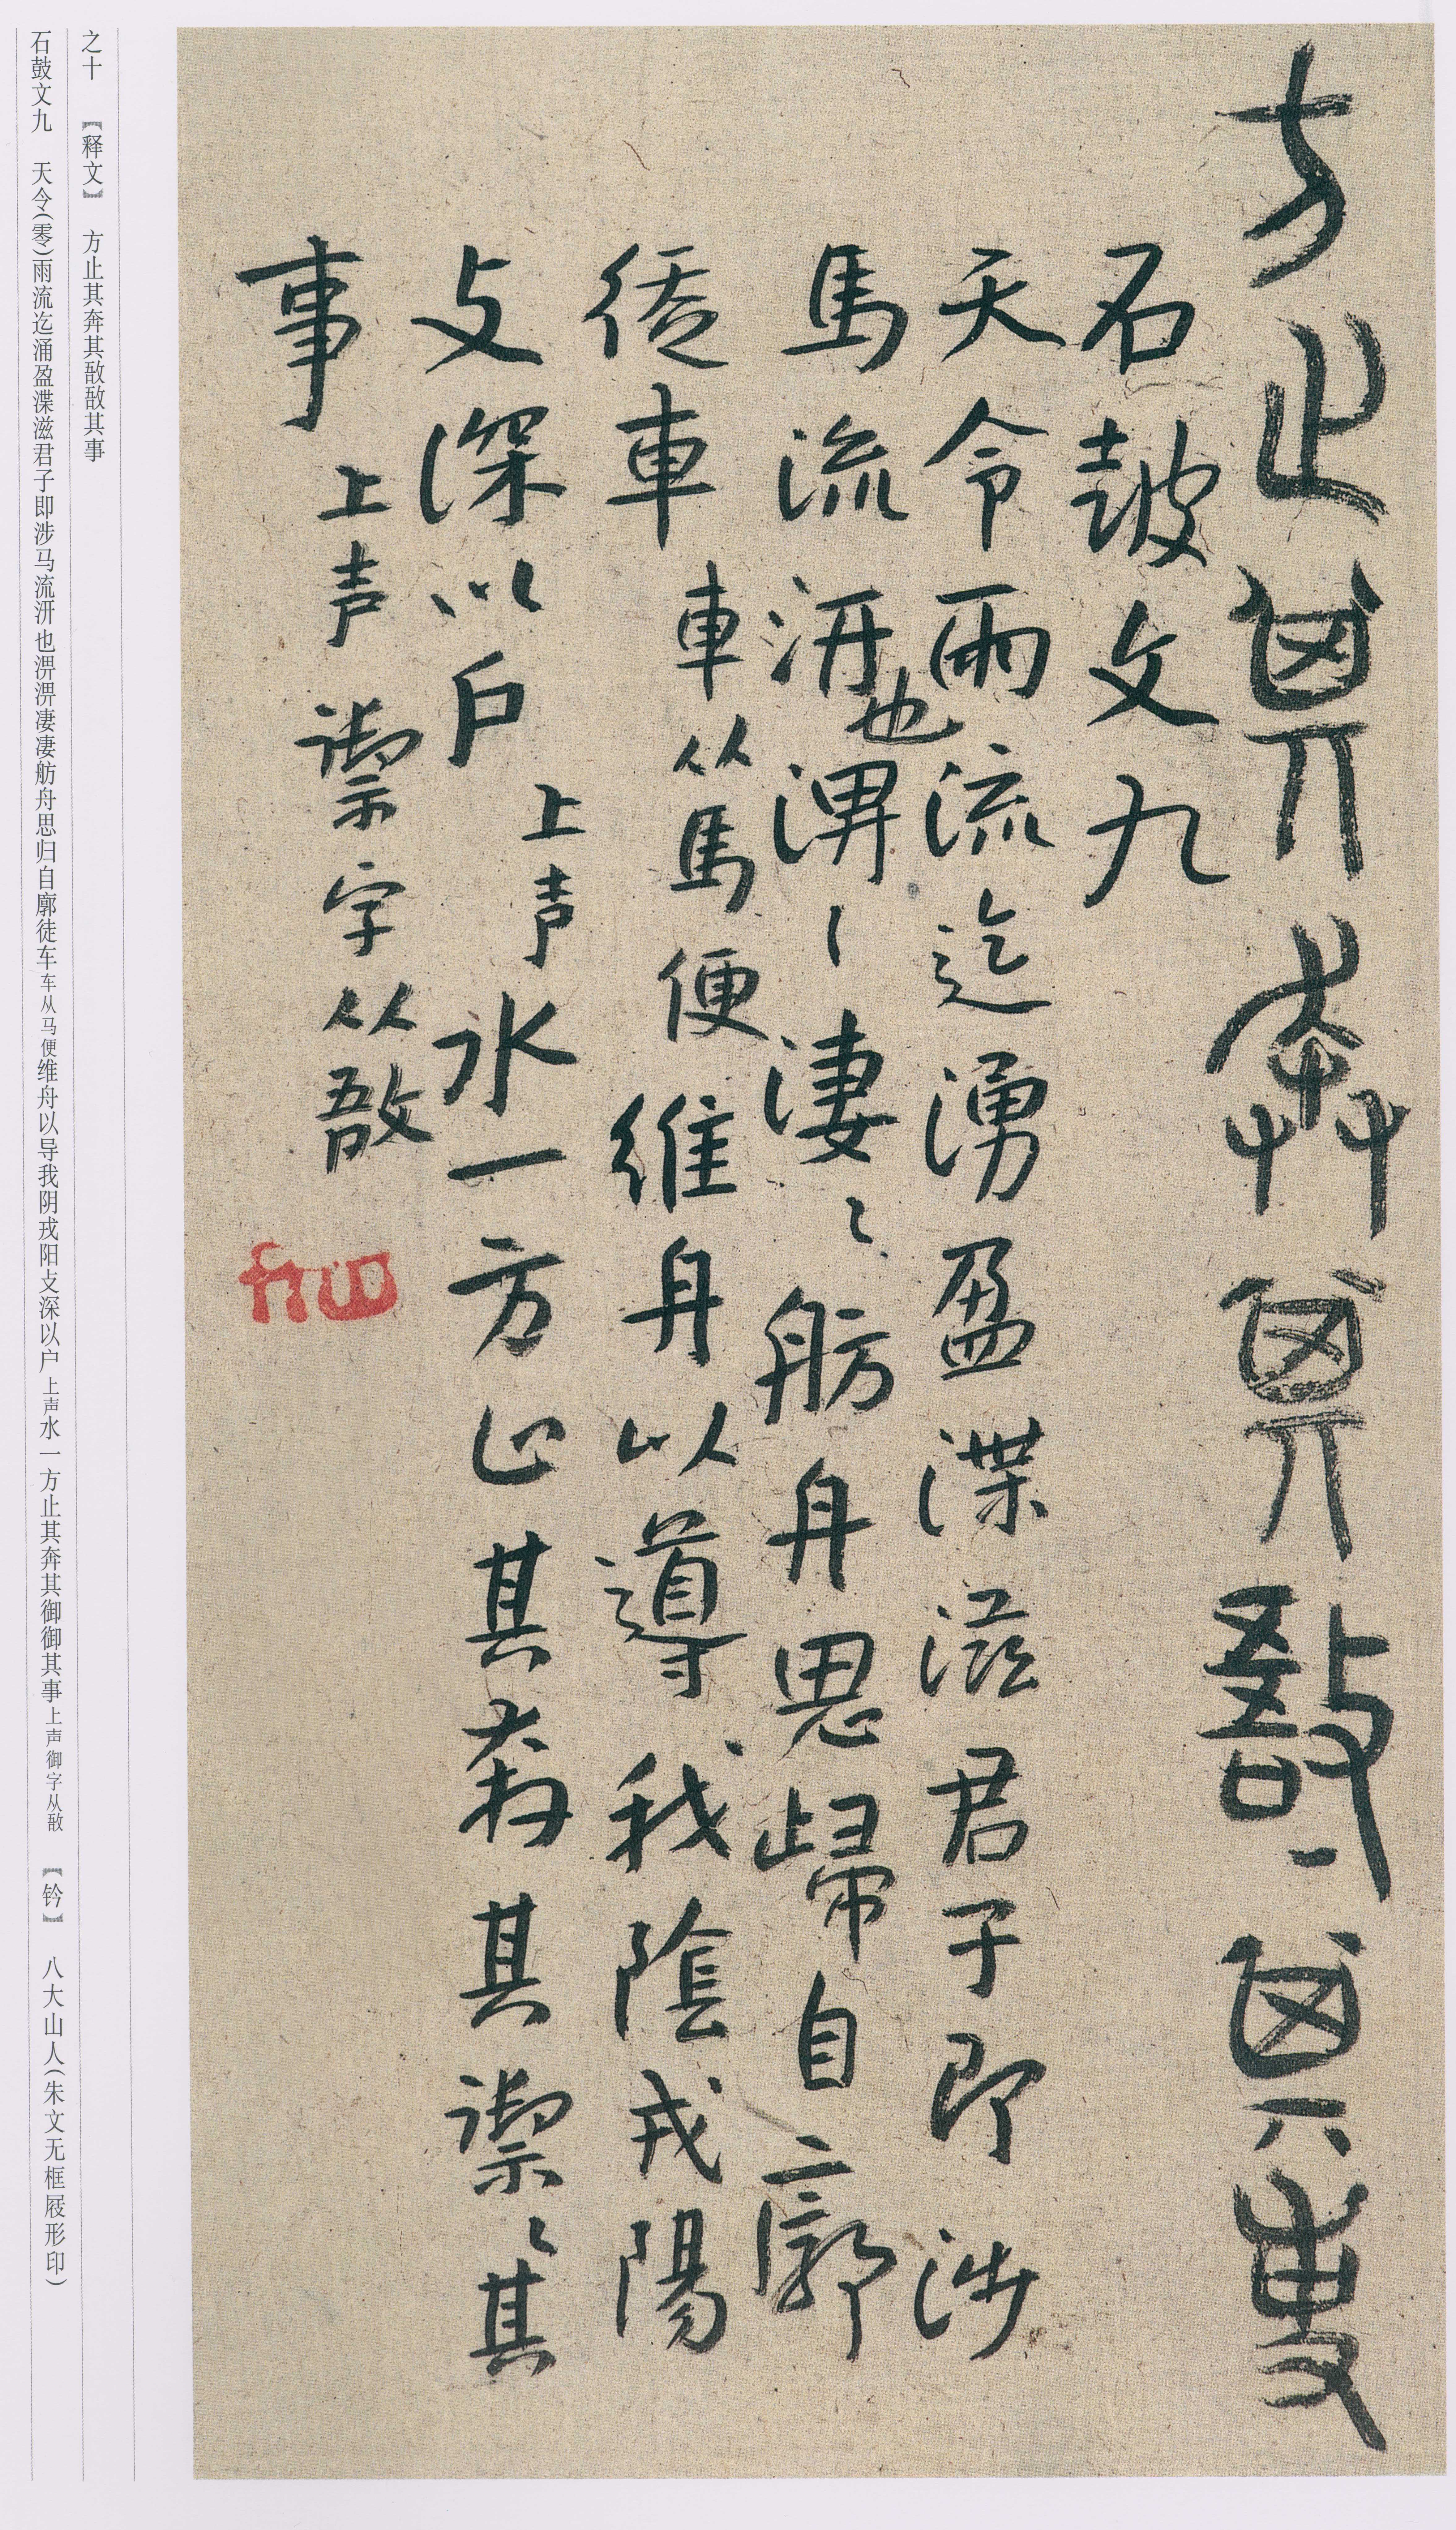 方止其奔其敔〻其事
石鼓文九
天令雨流迄湧盈渫滋君子即涉
馬流汧也淠〻淒〻舫舟思歸自廓
徒車車从馬便維舟以導我陰戎陽
攴深以户上声水一方止其奔其禦〻其
事上声禦字从敔
之十 【释文】 方止其奔其敔敔其事
石鼓文九 天令(零)雨流迄涌盈渫滋君子即涉马流汧也淠淠凄凄舫舟思归自廓徒车车从马便维舟以导我阴戎阳攴深以户上声水一方止其奔其御御其事上声御字从敔 【钤】 八大山人(朱文无框屐形印)